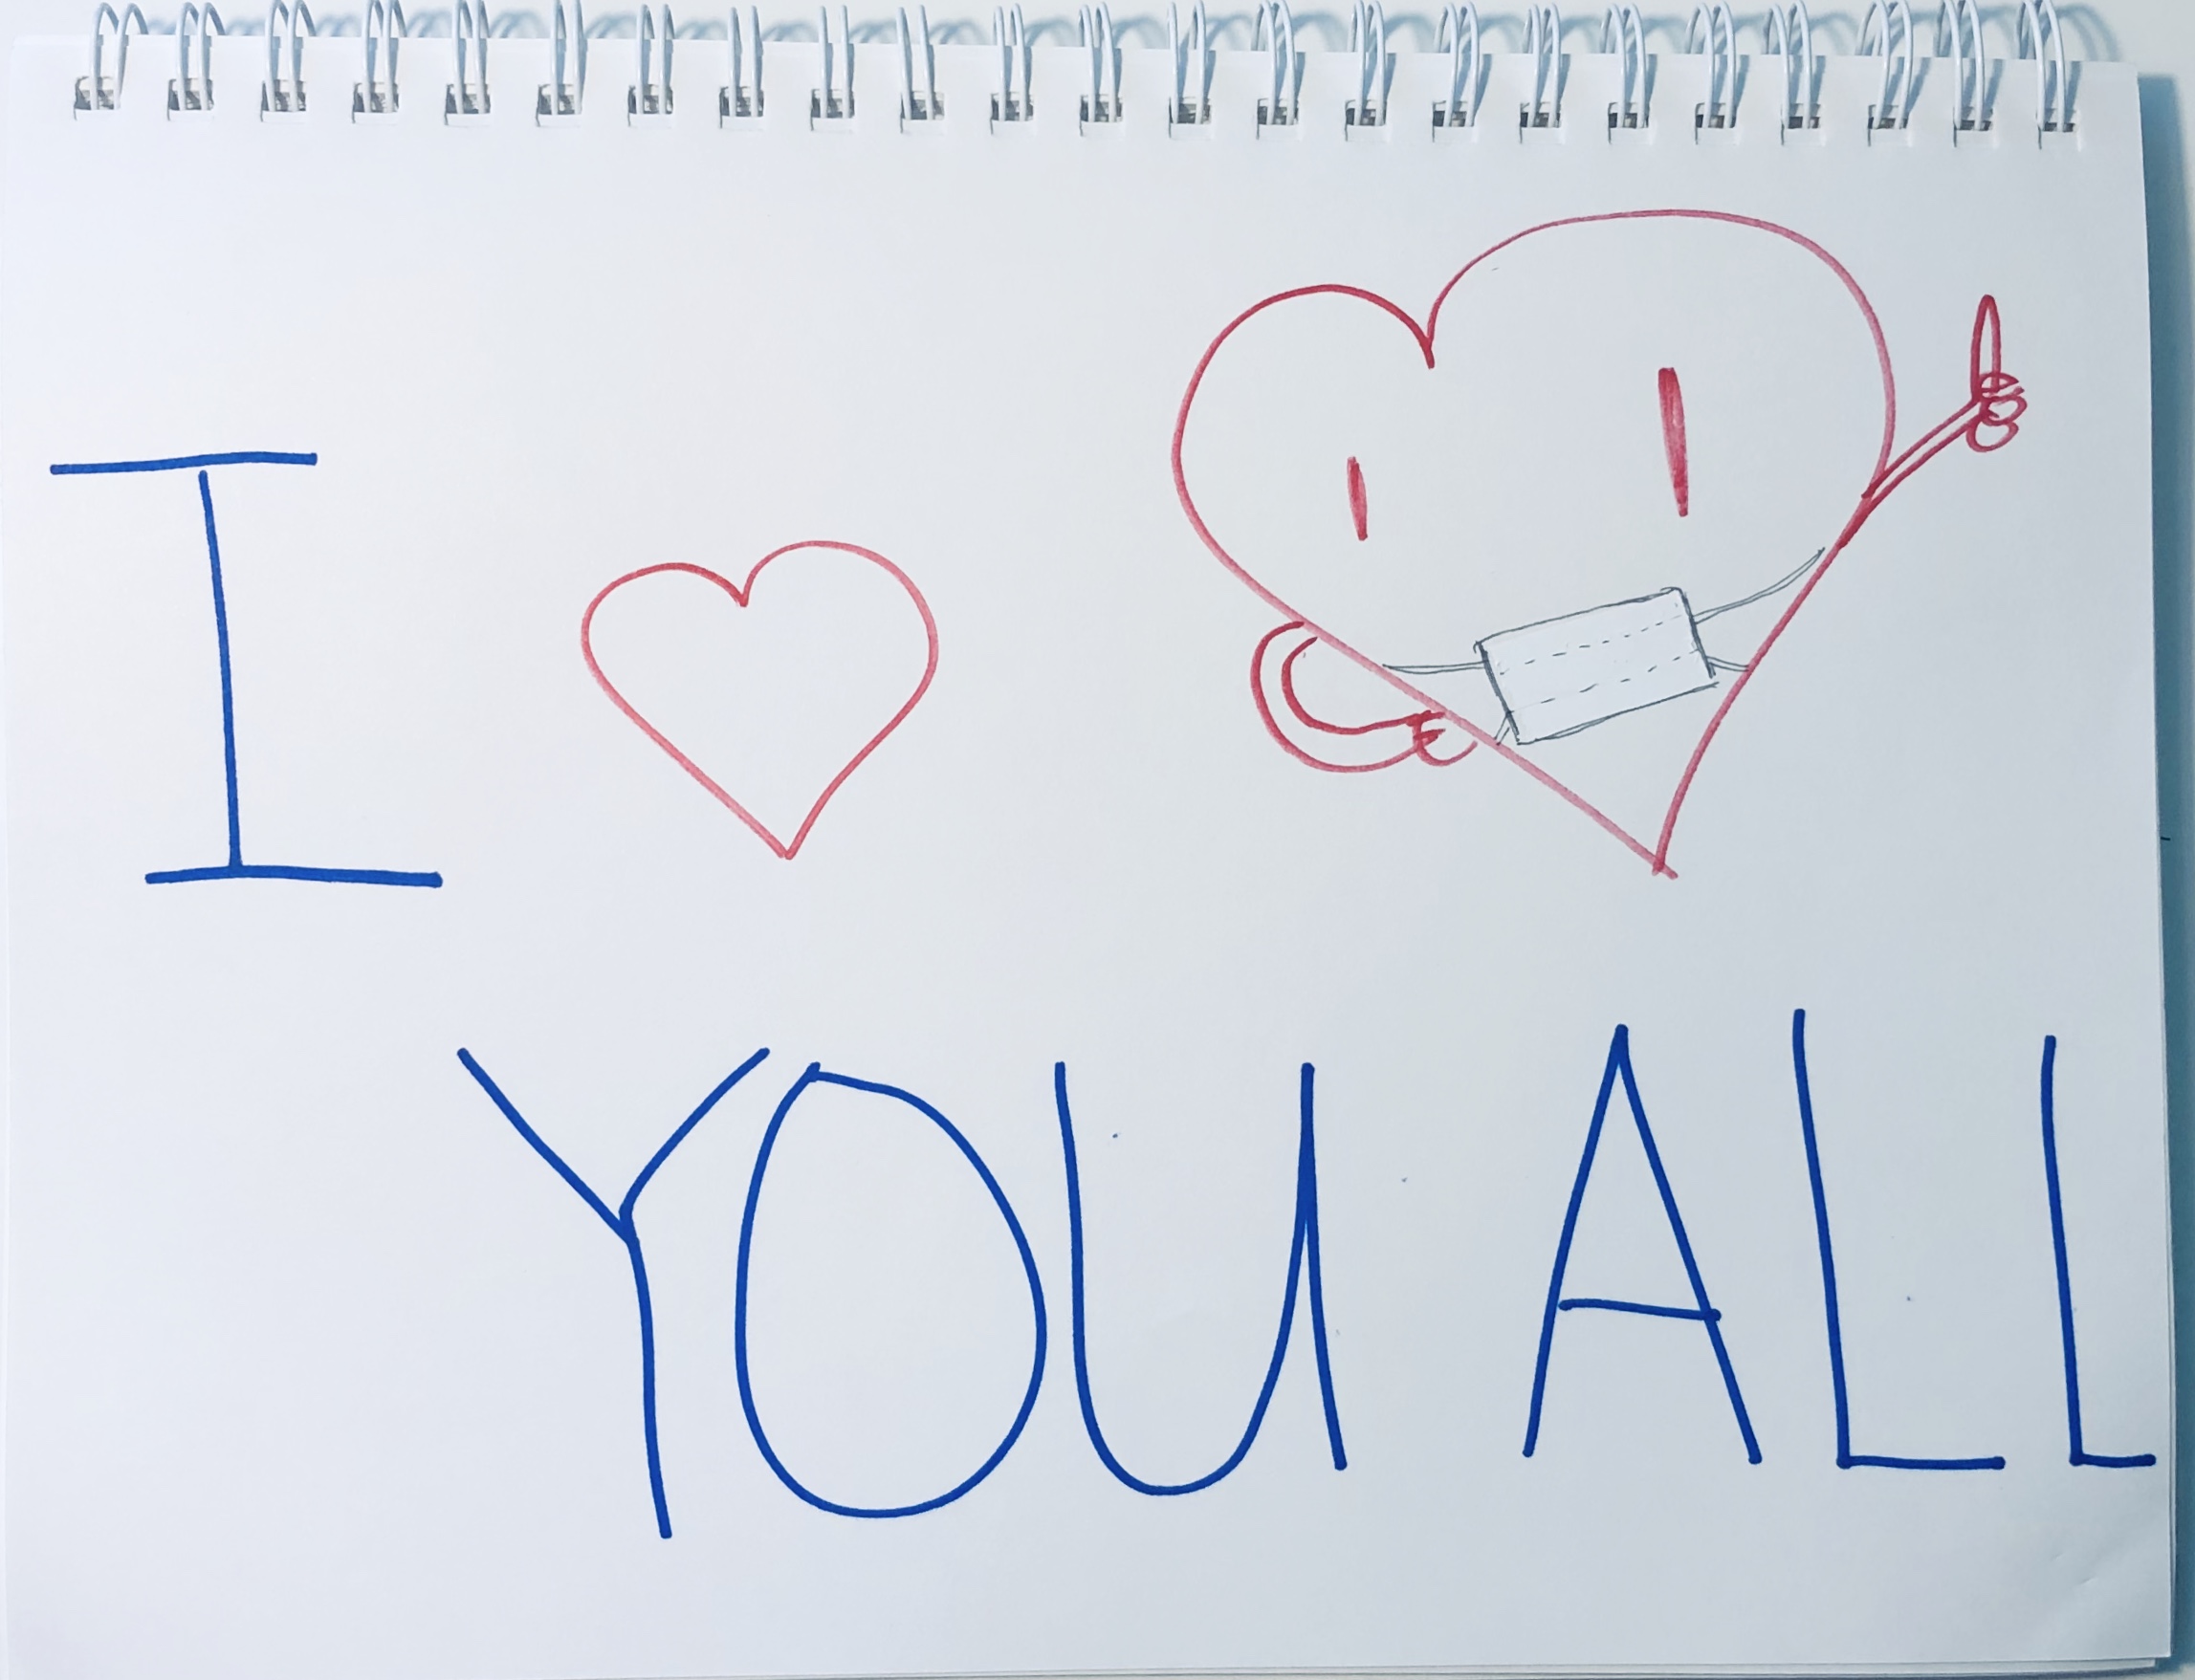 I
YOU ALL